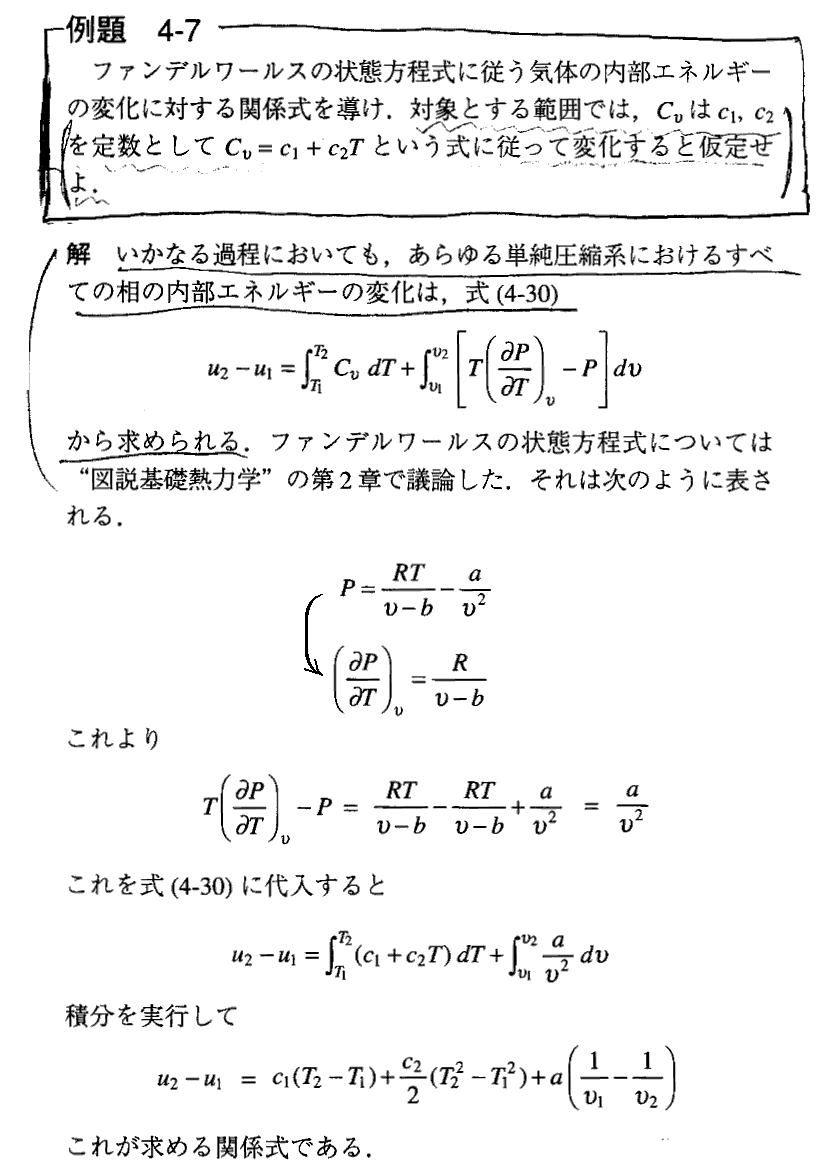 例題 4-7
ファンデルワールスの状態方程式に従う気体の内部エネルギー
の変化に対する関係式を導け．対象とする範囲では，Cᵥ は c₁, c₂
を定数として Cᵥ = c₁ + c₂T という式に従って変化すると仮定せ
よ．
解 いかなる過程においても，あらゆる単純圧縮系におけるすべ
ての相の内部エネルギーの変化は，式 (4-30)
u₂ − u₁ = ∫_{T₁}^{T₂} Cᵥ dT + ∫_{υ₁}^{υ₂} [T(∂P/∂T)_υ − P] dυ
から求められる．ファンデルワールスの状態方程式については
“図説基礎熱力学”の第 2 章で議論した．それは次のように表さ
れる．
P = RT/(υ − b) − a/υ²
(∂P/∂T)_υ = R/(υ − b)
これより
T(∂P/∂T)_υ − P = RT/(υ − b) − RT/(υ − b) + a/υ² = a/υ²
これを式 (4-30) に代入すると
u₂ − u₁ = ∫_{T₁}^{T₂} (c₁ + c₂T) dT + ∫_{υ₁}^{υ₂} a/υ² dυ
積分を実行して
u₂ − u₁ = c₁(T₂ − T₁) + c₂/2 (T₂² − T₁²) + a(1/υ₁ − 1/υ₂)
これが求める関係式である．